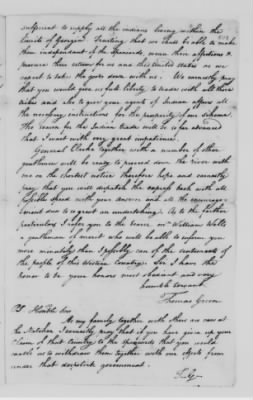 sufficient to supply all the indians living within the
limits of georgia Trusting that we shall be able to make
them independent of the Spaniards, wean their affections &
procure their esteem for us and the united states as we
expect to take the goods down with us. We earnestly pray
that you would give us full liberty to trade with all those
tribes and also to give your agent of Indian affairs all
the necessary instructions for the prosperity of our scheme.
The season for the Indian trade will be so far advanced
that I await with very great impatience.
General Clarke together with a number of other
gentlemen will be ready to proceed down the river with
me on the shortest notice therefore hope and earnestly
pray that you will dispatch the express back with all
possible speed with your answer and all the encourage-
ment due to so great an undertaking. As to the further
particulars I refer you to the bearer mr William Wells
a gentleman of merit who will be able to inform you
more minutely than I possibly can of the sentiments of
the people of this Western Country. Sir I have the
honor to be your honors most obedient and very
humble servant
Thomas Green
PS Honble Sir
As my family together with others are now at
the Natchez I earnestly pray that if you have given up your
claim of that Country to the Spaniards that you would
enable us to withdraw them together with our effects from
under that despotick government.
T. G.